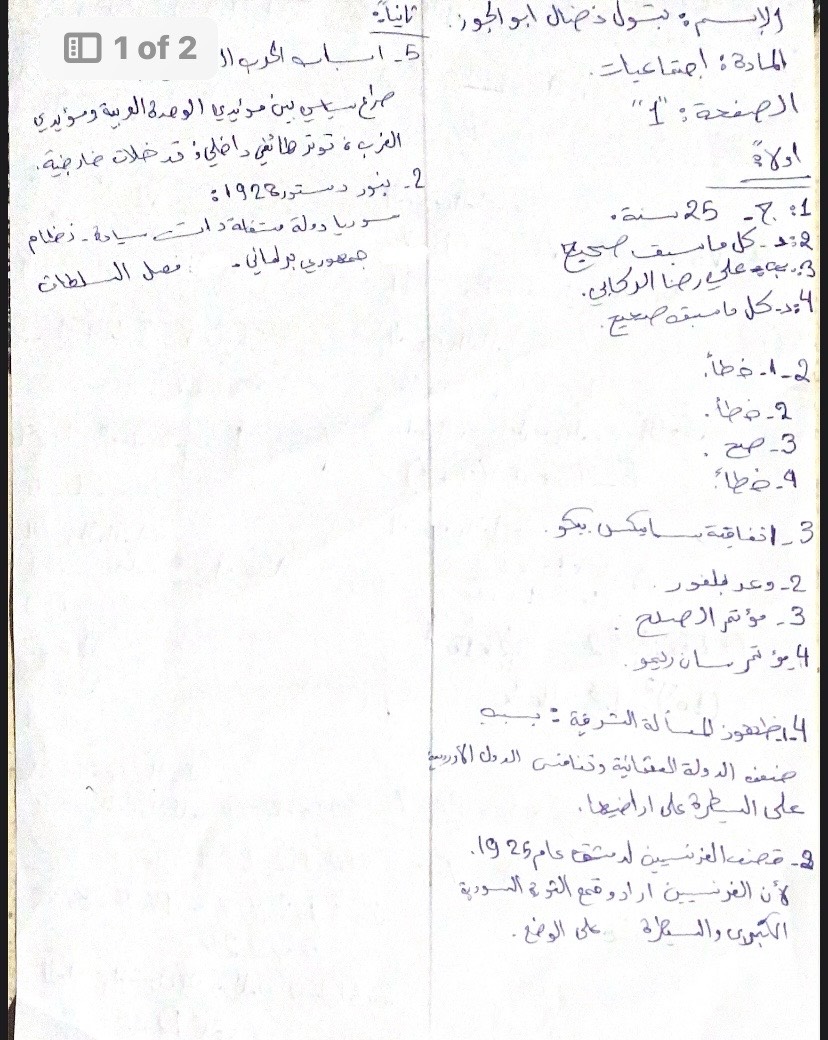 1 of 2
الإسم: بتول نضال ابو الجوز.
المادة: اجتماعيات.
الصفحة: "1"
اولاً:
1: ج- 25 سنة.
2: د- كل ما سبق صحيح
3: ب- علي رضا الركابي.
4: د- كل ما سبق صحيح.
2-1- خطأ.
2- خطأ.
3- صح.
4- خطأ.
3_1 اتفاقية سايكس بيكو.
2- وعد بلفور.
3- مؤتمر الصلح.
4- مؤتمر سان ريمو.
4-1- ظهور المسألة الشرقية: بسبب
ضعف الدولة العثمانية وتنافس الدول الأوروبية
على السيطرة على اراضيها.
2- قصف الفرنسيين لدمشق عام 1925.
لأن الفرنسيين ارادو قمع الثورة السورية
الكبرى والسيطرة على الوضع.
ثانياً:
5- اسباب الحرب ال
صراع سياسي بين مؤيدي الوحدة العربية ومؤيدي
الغرب، توتر طائفي داخلي، تدخلات خارجية.
2- بنود دستور 1928:
سوريا دولة مستقلة ذات سيادة - نظام
جمهوري برلماني - فصل السلطات